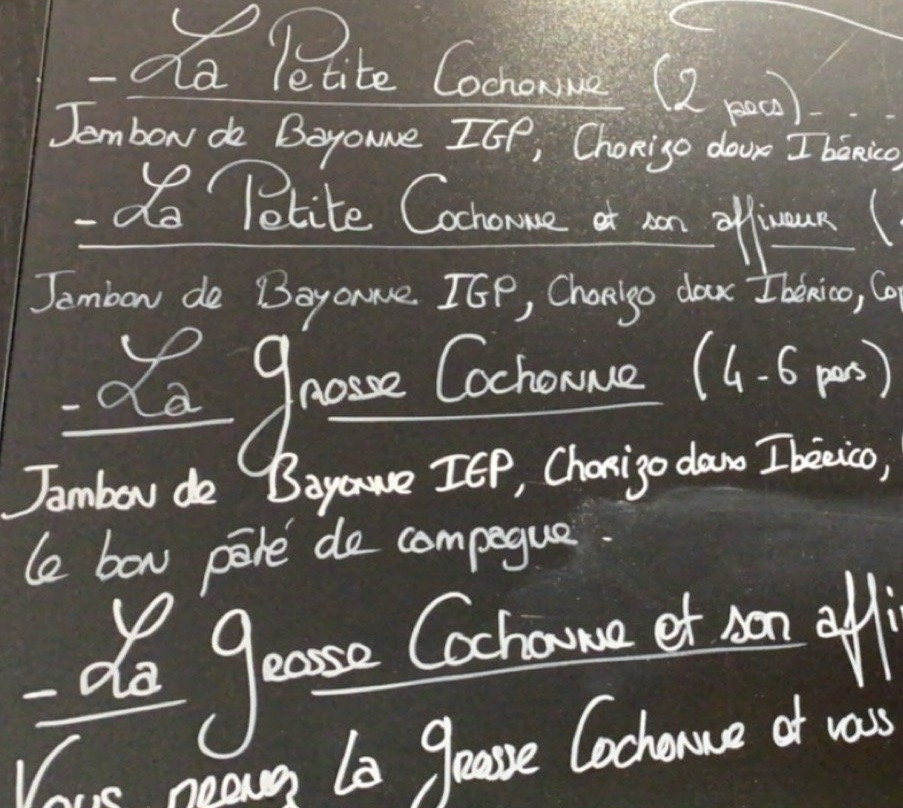 - La Petite Cochonne (2 pers)- - - -
Jambon de Bayonne IGP, Chorizo doux Ibérico,
- La Petite Cochonne et son affineur (
Jambon de Bayonne IGP, Chorizo doux Ibérico,
- La grosse Cochonne (4-6 pers)
Jambon de Bayonne IGP, Chorizo doux Ibérico,
le bon pâté de campagne.
- La grosse Cochonne et son
Vous prenez la grosse Cochonne et vous